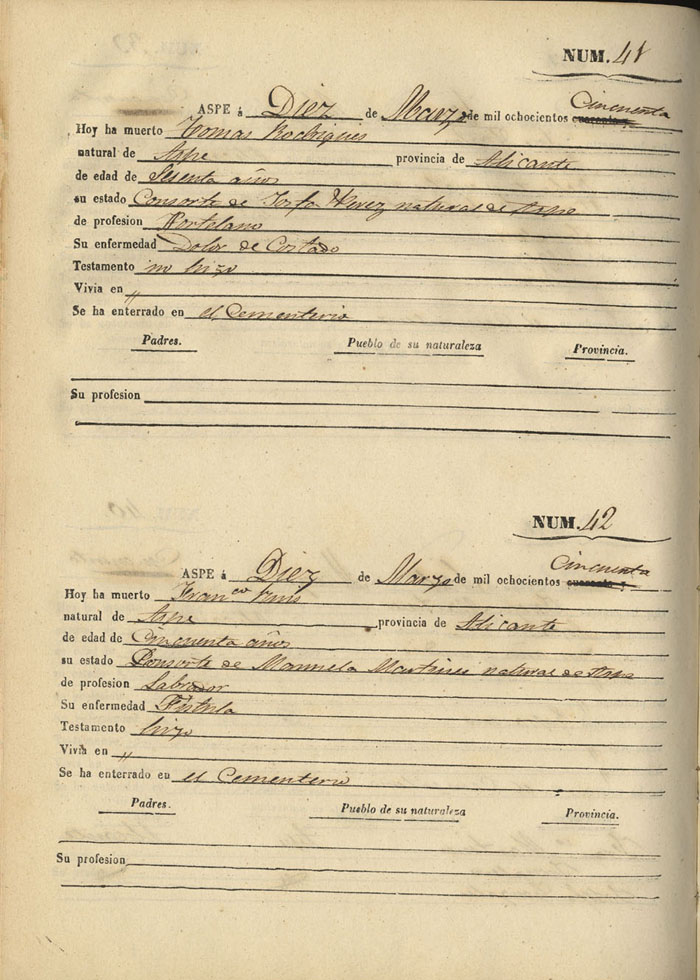 NUM. 41
Cincuenta
ASPE á Diez de Marzo de mil ochocientos cuarenta y
Hoy ha muerto Tomas Rodrigues
natural de Aspe provincia de Alicante
de edad de Sesenta años
su estado Consorte de Josefa Perez natural de Aspe
de profesion Hortelano
Su enfermedad Dolor de Costado
Testamento no hizo
Vivia en "
Se ha enterrado en el Cementerio
Padres. Pueblo de su naturaleza Provincia.
Su profesion
NUM. 42
Cincuenta
ASPE á Diez de Marzo de mil ochocientos cuarenta y
Hoy ha muerto Fran.co
natural de Aspe provincia de Alicante
de edad de Cincuenta años
su estado Consorte de Manuela natural de Aspe
de profesion Labrador
Su enfermedad Fistula
Testamento hizo
Vivia en "
Se ha enterrado en el Cementerio
Padres. Pueblo de su naturaleza Provincia.
Su profesion